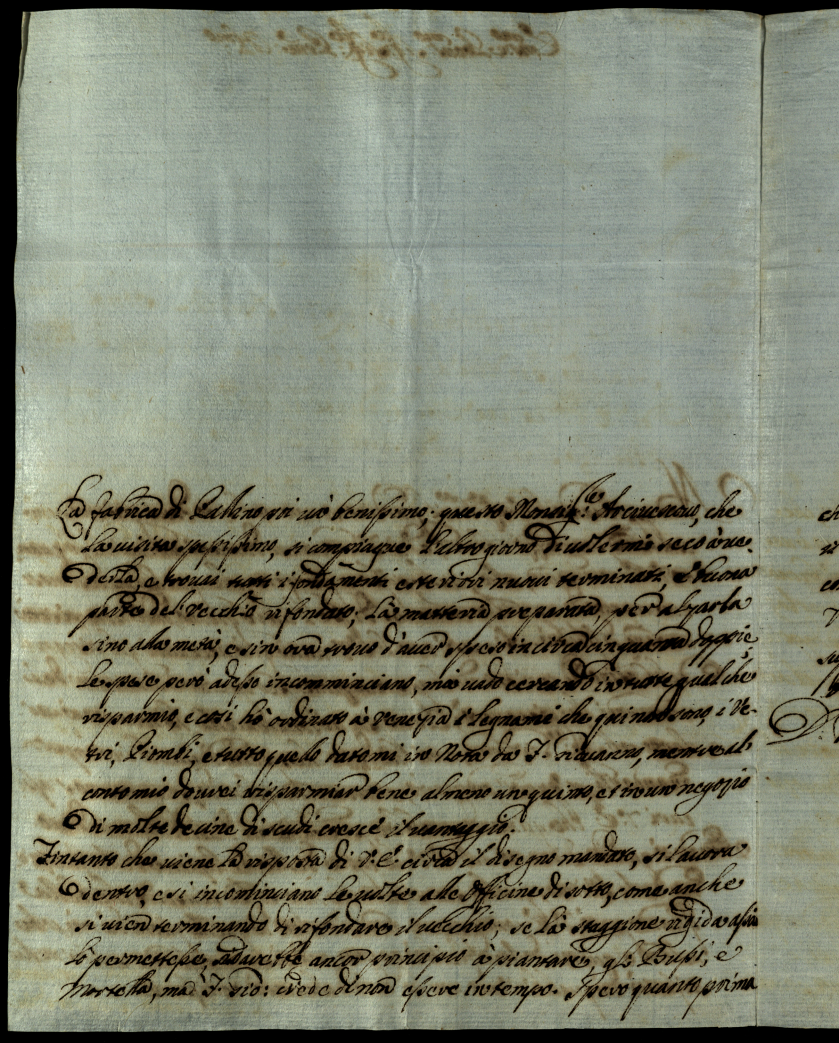 La fabrica di Pallino poi và benissimo; questo Monsig.re Arcivescovo, che
la visita spessissimo, si compiaque l'altro giorno di volermi seco à ve-
derla, e trovai tutti i fondamenti esteriori nuovi terminati, e buona
parte del vecchio rifondato; la materia preparata, per alzarla
sino alla metà, e sin ora trovo d'aver speso in circa cinquanta doppie;
le spese però adesso incomminciano, mà vado cercando in tutte qualche
risparmio, e così hò ordinato à Venezia i legnami che quì non sono, i Ve-
tri, Piombi, e tutto quello datomi in Nota da mentre al
conto mio dovrei risparmiar bene almeno un quinto, et in un negozio
di molte decine di scudi cresce il vantaggio.
Intanto che viene la risposta di V.E. circa il disegno mandato, si lavora
dentro, e si incominciano le volte alle Officine di sotto, come anche
si vien terminando di rifondare il vecchio; se la staggione rigida
lo permettesse, si darebbe ancor principio à piantare gli Bussi, e
Mortella, mà crede di non essere in tempo. Spero quanto prima